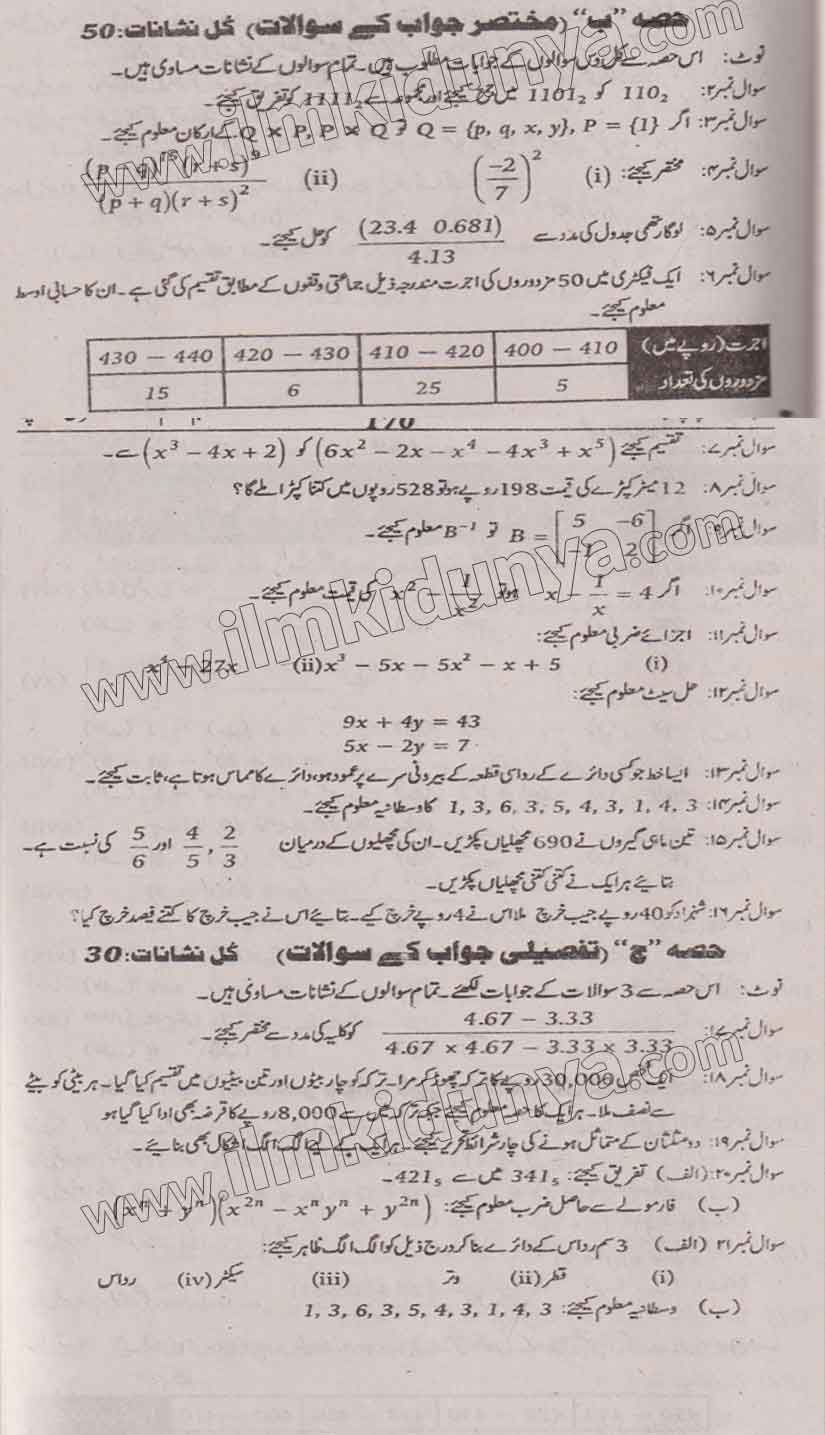 حصہ ”ب“ (مختصر جواب کے سوالات) کُل نشانات: 50
نوٹ: اس حصہ سے کل دس سوالوں کے جوابات مطلوب ہیں۔ تمام سوالوں کے نشانات مساوی ہیں۔
سوال نمبر۲: 110₂ کو 1101₂ میں جمع کیجئے اور مجموعہ سے 1111₂ کو تفریق کیجئے۔
سوال نمبر۳: اگر Q = {p, q, x, y}, P = {1} تو Q × P, P × Q کے ارکان معلوم کیجئے۔
سوال نمبر۴: مختصر کیجئے: (i) (-2/7)² (ii) (p q)¹⁵(r + s)⁹ / (p + q)(r + s)²
سوال نمبر۵: لوگارتھمی جدول کی مدد سے (23.4 0.681) / 4.13 کو حل کیجئے۔
سوال نمبر۶: ایک فیکٹری میں 50 مزدوروں کی اجرت مندرجہ ذیل جماعتی وقفوں کے مطابق تقسیم کی گئی ہے۔ ان کا حسابی اوسط
معلوم کیجئے۔
اجرت (روپے میں) 400 — 410 410 — 420 420 — 430 430 — 440
مزدوروں کی تعداد 5 25 6 15
170
سوال نمبر۷: تقسیم کیجئے (6x² − 2x − x⁴ − 4x³ + x⁵) کو (x³ − 4x + 2) سے۔
سوال نمبر۸: 12 میٹر کپڑے کی قیمت 198 روپے ہو تو 528 روپوں میں کتنا کپڑا ملے گا؟
سوال نمبر۹: اگر B = [5 −6; −1 2] تو B⁻¹ معلوم کیجئے۔
سوال نمبر۱۰: اگر x − 1/x = 4 ہو تو x² − 1/x² کی قیمت معلوم کیجئے۔
سوال نمبر۱۱: اجزائے ضربی معلوم کیجئے:
(i) x³ − 5x − 5x² − x + 5 (ii) x⁴ − 27x
سوال نمبر۱۲: حل سیٹ معلوم کیجئے:
9x + 4y = 43
5x − 2y = 7
سوال نمبر۱۳: ایسا خط جو کسی دائرے کے رداسی قطعہ کے بیرونی سرے پر عمود ہو، دائرے کا مماس ہوتا ہے، ثابت کیجئے۔
سوال نمبر۱۴: 1, 3, 6, 3, 5, 4, 3, 1, 4, 3 کا وسطانیہ معلوم کیجئے۔
سوال نمبر۱۵: تین ماہی گیروں نے 690 مچھلیاں پکڑیں۔ ان کی مچھلیوں کے درمیان 2/3 , 4/5 اور 5/6 کی نسبت ہے۔
بتایئے ہر ایک نے کتنی کتنی مچھلیاں پکڑیں۔
سوال نمبر۱۶: شہزاد کو 40 روپے جیب خرچ ملا اس نے 4 روپے خرچ کیے۔ بتایئے اس نے جیب خرچ کا کتنے فیصد خرچ کیا؟
حصہ ”ج“ (تفصیلی جواب کے سوالات) کُل نشانات: 30
نوٹ: اس حصہ سے 3 سوالات کے جوابات لکھئے۔ تمام سوالوں کے نشانات مساوی ہیں۔
سوال نمبر۱۷: 4.67 − 3.33 / 4.67 × 4.67 − 3.33 × 3.33 کو کلیہ کی مدد سے مختصر کیجئے۔
سوال نمبر۱۸: ایک شخص 30,000 روپے کا ترکہ چھوڑ کر مرا۔ ترکہ کو چار بیٹوں اور تین بیٹیوں میں تقسیم کیا گیا۔ ہر بیٹی کو بیٹے
سے نصف ملا۔ ہر ایک کا حصہ معلوم کیجئے جبکہ ترکہ میں سے 8,000 روپے کا قرضہ بھی ادا کیا گیا ہو
سوال نمبر۱۹: دو مثلثان کے متماثل ہونے کی چار شرائط تحریر کیجئے۔ ہر ایک کے لیے الگ الگ اشکال بھی بنائیے۔
سوال نمبر۲۰: (الف) تفریق کیجئے: 341₅ میں سے 421₅۔
(ب) فارمولے سے حاصل ضرب معلوم کیجئے: (xⁿ + yⁿ)(x²ⁿ − xⁿyⁿ + y²ⁿ)
سوال نمبر۲۱ (الف) 3 سم رداس کے دائرے بنا کر درج ذیل کو الگ الگ ظاہر کیجئے:
(i) قطر (ii) وتر (iii) سیکٹر (iv) رداس
(ب) وسطانیہ معلوم کیجئے: 1, 3, 6, 3, 5, 4, 3, 1, 4, 3
www.ilmkidunya.com
www.ilmkidunya.com
www.ilmkidunya.com